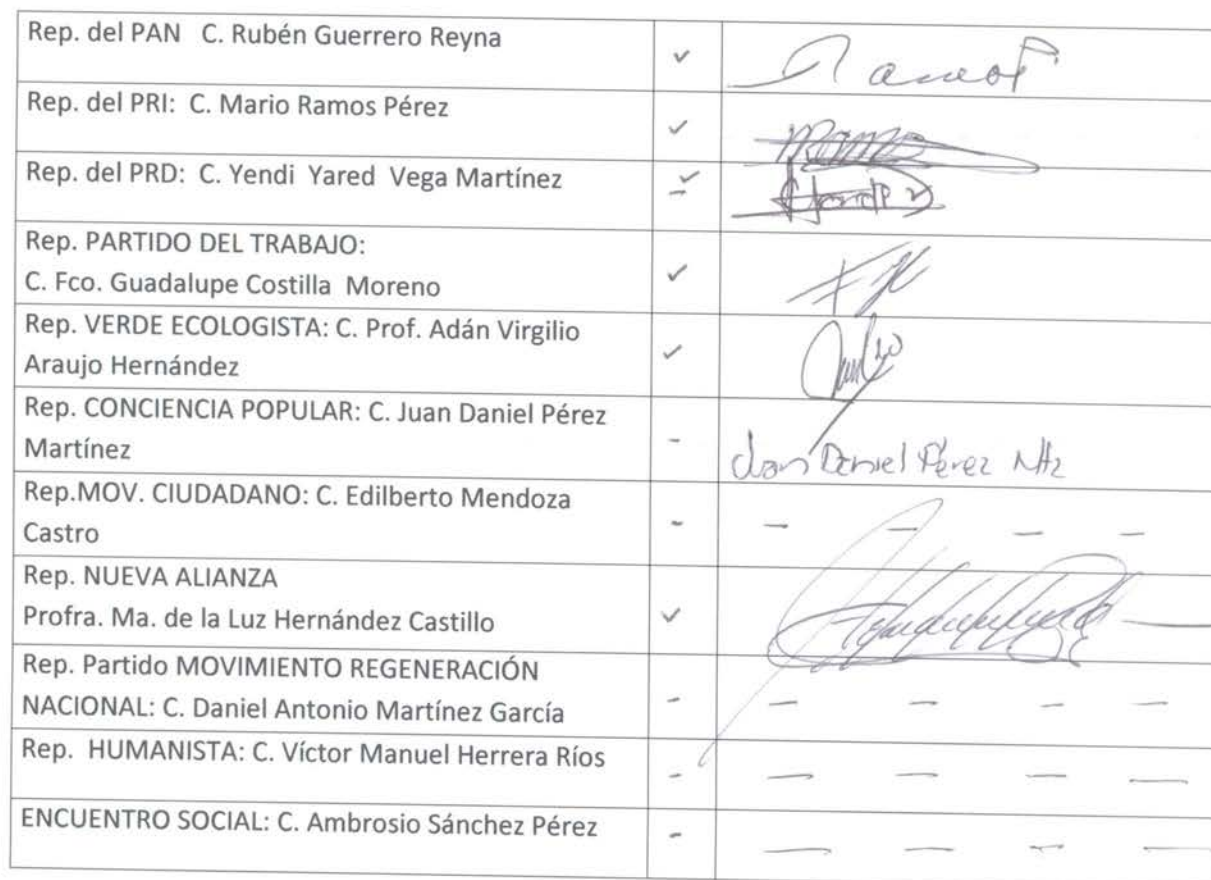 Rep. del PAN   C. Rubén Guerrero Reyna ✓
Rep. del PRI:  C. Mario Ramos Pérez ✓
Rep. del PRD:  C. Yendi  Yared  Vega Martínez ✓
Rep. PARTIDO DEL TRABAJO:
C. Fco. Guadalupe Costilla  Moreno ✓
Rep. VERDE ECOLOGISTA: C. Prof. Adán Virgilio
Araujo Hernández ✓
Rep. CONCIENCIA POPULAR: C. Juan Daniel Pérez
Martínez - Juan Daniel Pérez Mtz
Rep.MOV. CIUDADANO: C. Edilberto Mendoza
Castro - — — — —
Rep. NUEVA ALIANZA
Profra. Ma. de la Luz Hernández Castillo ✓
Rep. Partido MOVIMIENTO REGENERACIÓN
NACIONAL: C. Daniel Antonio Martínez García - — — — —
Rep.  HUMANISTA: C. Víctor Manuel Herrera Ríos - — — — —
ENCUENTRO SOCIAL: C. Ambrosio Sánchez Pérez - — — — —